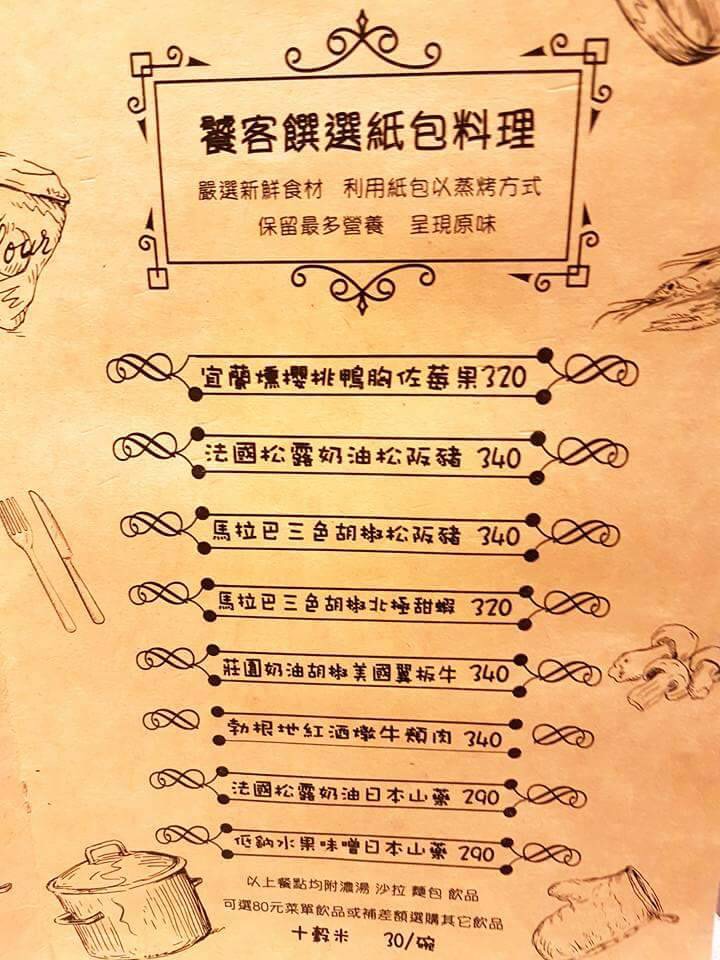 饕客饌選紙包料理
嚴選新鮮食材 利用紙包以蒸烤方式
保留最多營養 呈現原味
宜蘭燻櫻桃鴨胸佐莓果320
法國松露奶油松阪豬 340
馬拉巴三色胡椒松阪豬 340
馬拉巴三色胡椒北極甜蝦 320
莊園奶油胡椒美國翼板牛 340
勃根地紅酒燉牛頰肉 340
法國松露奶油日本山藥 290
低鈉水果味噌日本山藥 290
以上餐點均附濃湯 沙拉 麵包 飲品
可選80元菜單飲品或補差額選購其它飲品
十穀米 30/碗
our